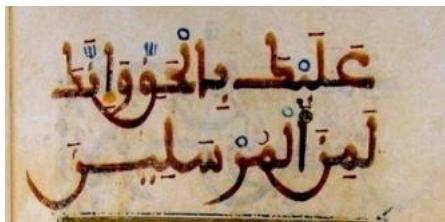 عَلَيْكَ بِالْحَقِّ وَإِنَّكَ
لَمِنَ ٱلْمُرْسَلِينَ